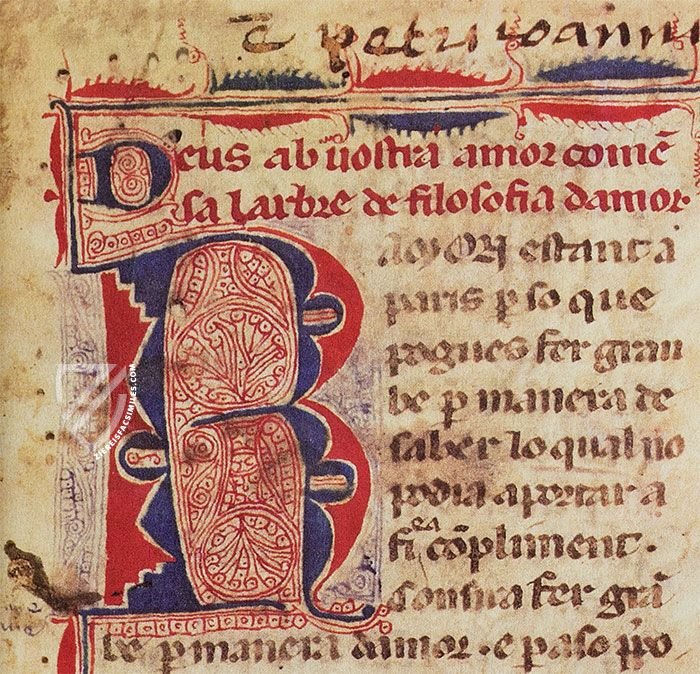 e petri ioanni
Deus ab uostra amor comē
sa larbre de filosofia damor
RAMON estant a
paris p so que
pogues fer gran
be p manera de
saber lo qual no
podia aportar a
fi cōpliment.
consira fer grā
be p manera damor. e p aso p̄po
ZIEREISFACSIMILES.COM